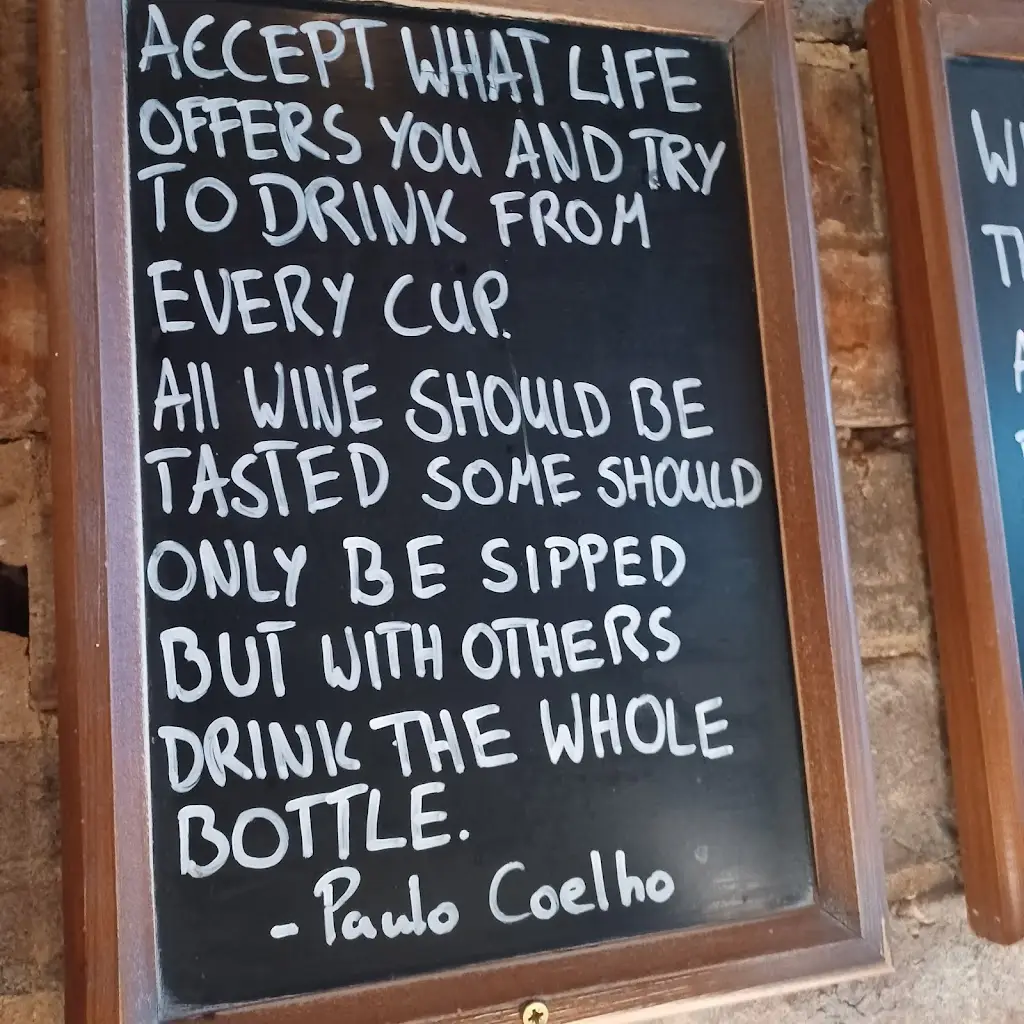 ACCEPT WHAT LIFE
OFFERS YOU AND TRY
TO DRINK FROM
EVERY CUP.
All WINE SHOULD BE
TASTED SOME SHOULD
ONLY BE SIPPED
BUT WITH OTHERS
DRINK THE WHOLE
BOTTLE.
- Paulo Coelho